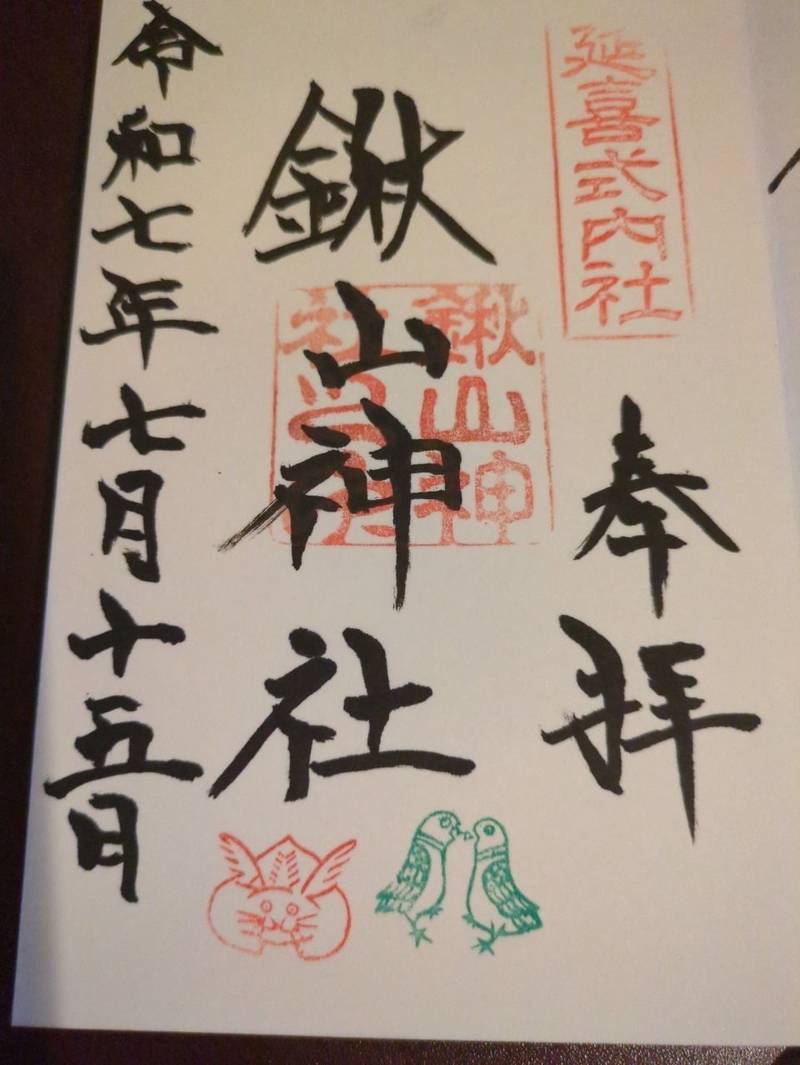 延喜式内社
奉拝
鍬山神社
鍬山神社之印
令和七年七月十五日